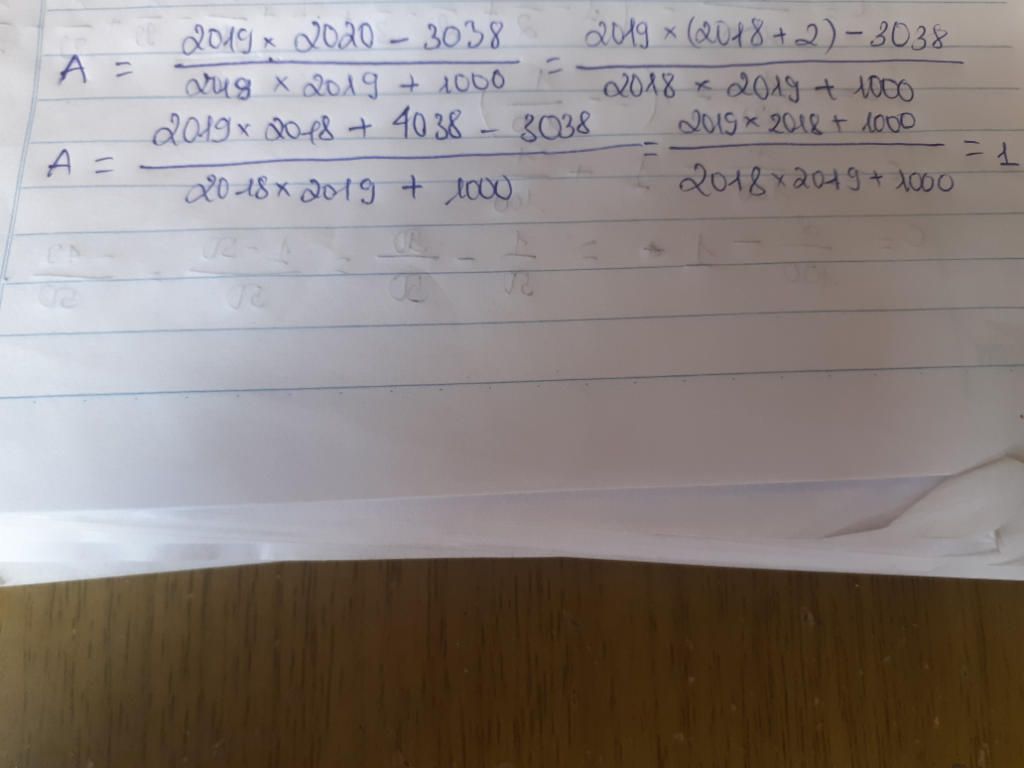 A = (2019 × 2020 - 3038)/(2018 × 2019 + 1000) = (2019 × (2018 + 2) - 3038)/(2018 × 2019 + 1000)
A = (2019 × 2018 + 4038 - 3038)/(2018 × 2019 + 1000) = (2019 × 2018 + 1000)/(2018 × 2019 + 1000) = 1